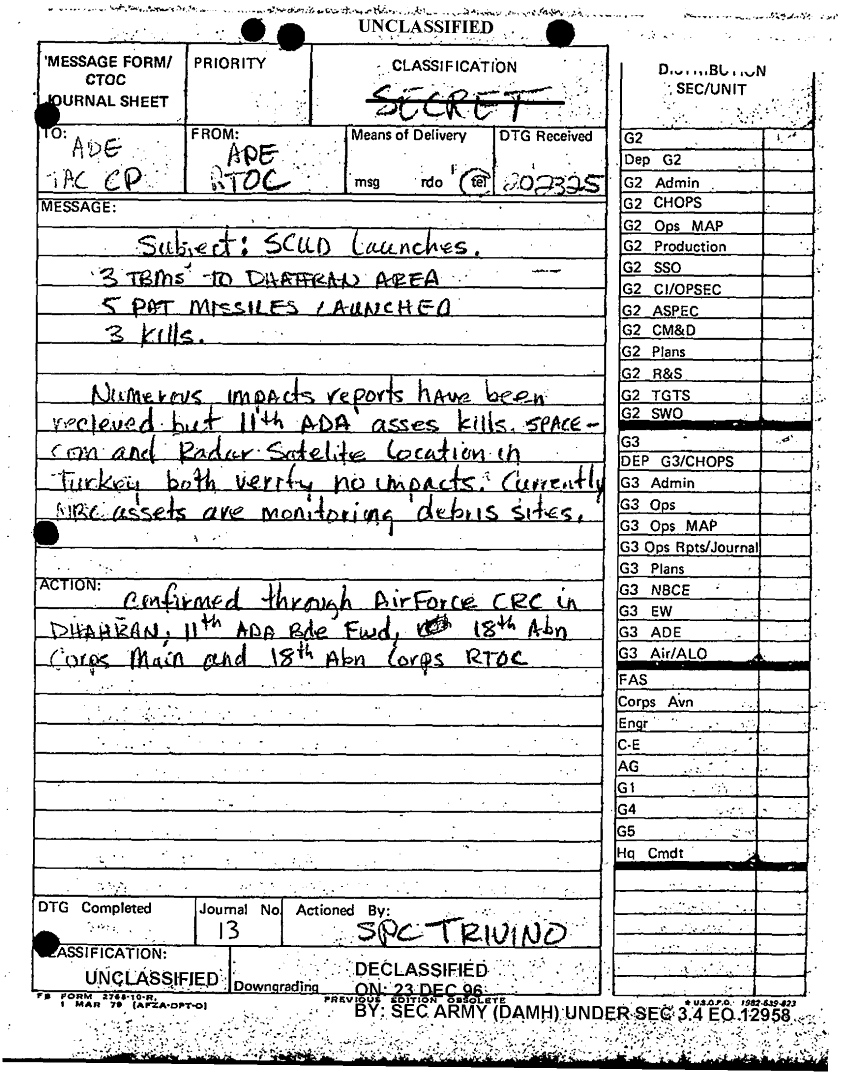 UNCLASSIFIED
MESSAGE FORM/
CTOC
JOURNAL SHEET
PRIORITY
CLASSIFICATION
SECRET
TO: ADE
TAC CP
FROM: ADE
RTOC
Means of Delivery
msg rdo tel
DTG Received
202325
MESSAGE:
Subject: SCUD Launches.
3 TBMs TO DHAHRAN AREA
5 PAT MISSILES LAUNCHED
3 kills.
Numerous impacts reports have been
recieved but 11th ADA asses kills. SPACE-
com and Radar Satelite Location in
Turkey both verify no impacts. Currently
assets are monitoring debris sites.
ACTION:
Confirmed through AirForce CRC in
DHAHRAN, 11th ADA Bde Fwd, 18th Abn
Corps Main and 18th Abn Corps RTOC
DTG Completed
Journal No
13
Actioned By:
SPC TRIVINO
CLASSIFICATION:
UNCLASSIFIED
Downgrading
DECLASSIFIED
ON: 23 DEC 96
FB FORM 2768-10-R,
1 MAR 79 (AFZA-DPT-O)
PREVIOUS EDITION OBSOLETE
BY: SEC ARMY (DAMH) UNDER SEC 3.4 EO 12958
DISTRIBUTION
SEC/UNIT
G2
Dep G2
G2 Admin
G2 CHOPS
G2 Ops MAP
G2 Production
G2 SSO
G2 CI/OPSEC
G2 ASPEC
G2 CM&D
G2 Plans
G2 R&S
G2 TGTS
G2 SWO
G3
DEP G3/CHOPS
G3 Admin
G3 Ops
G3 Ops MAP
G3 Ops Rpts/Journal
G3 Plans
G3 NBCE
G3 EW
G3 ADE
G3 Air/ALO
FAS
Corps Avn
Engr
C-E
AG
G1
G4
G5
Hq Cmdt
★ U.S.G.P.O. 1982-539-823